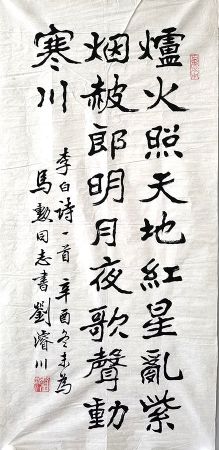 爐火照天地紅星亂紫
烟赧郎明月夜歌聲動
寒川
李白诗一首 辛酉冬末为
馬勳同志書 劉濬川